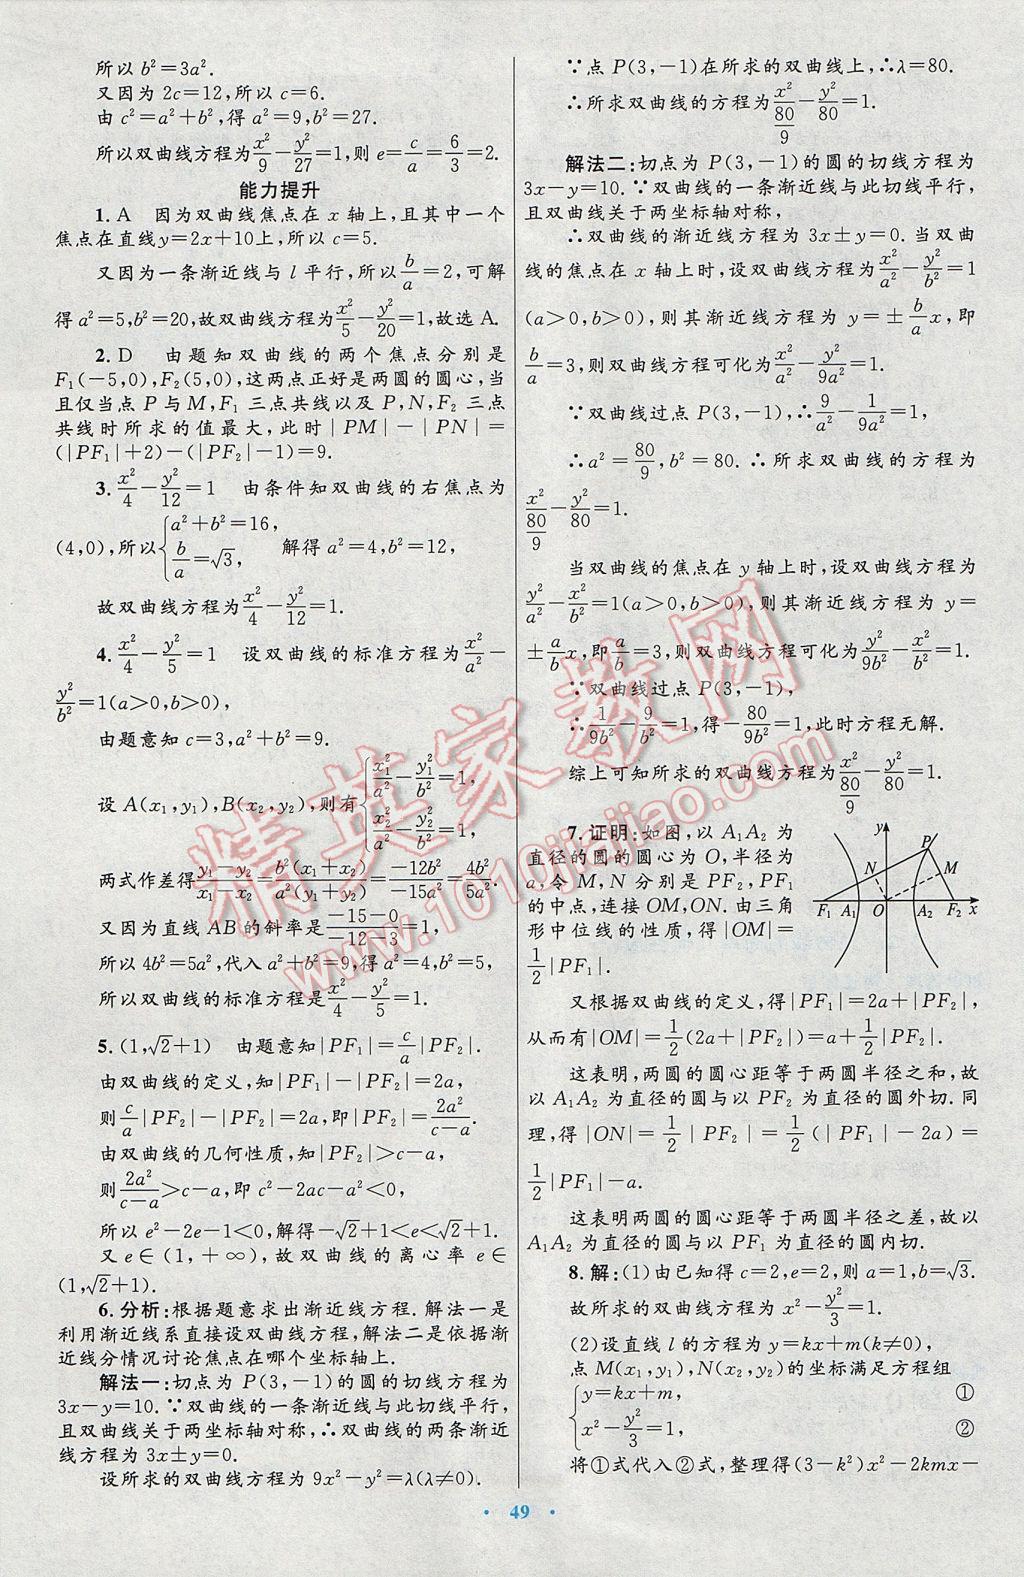 所以 b²=3a².
又因为 2c=12,所以 c=6.
由 c²=a²+b²,得 a²=9,b²=27.
所以双曲线方程为x²/9−y²/27=1,则 e=c/a=6/3=2.
能力提升
1. A　因为双曲线焦点在 x 轴上,且其中一个
焦点在直线y=2x+10上,所以 c=5.
又因为一条渐近线与 l 平行,所以b/a=2,可解
得 a²=5,b²=20,故双曲线方程为x²/5−y²/20=1,故选A.
2. D　由题知双曲线的两个焦点分别是
F₁(−5,0),F₂(5,0),这两点正好是两圆的圆心,当
且仅当点 P 与 M,F₁ 三点共线以及 P,N,F₂ 三点
共线时所求的值最大,此时|PM|−|PN|=
(|PF₁|+2)−(|PF₂|−1)=9.
3. x²/4−y²/12=1　由条件知双曲线的右焦点为
(4,0),所以{a²+b²=16, b/a=√3,　解得 a²=4,b²=12,
故双曲线方程为x²/4−y²/12=1.
4. x²/4−y²/5=1　设双曲线的标准方程为x²/a²−
y²/b²=1(a>0,b>0),
由题意知 c=3,a²+b²=9.
设 A(x₁,y₁),B(x₂,y₂),则有{x₁²/a²−y₁²/b²=1, x₂²/a²−y₂²/b²=1,
两式作差得(y₁−y₂)/(x₁−x₂)=b²(x₁+x₂)/a²(y₁+y₂)=−12b²/−15a²=4b²/5a².
又因为直线 AB 的斜率是(−15−0)/(−12−3)=1,
所以 4b²=5a²,代入 a²+b²=9,得 a²=4,b²=5,
所以双曲线的标准方程是x²/4−y²/5=1.
5. (1,√2+1)　由题意知|PF₁|=c/a|PF₂|.
由双曲线的定义,知|PF₁|−|PF₂|=2a,
则c/a|PF₂|−|PF₂|=2a,即|PF₂|=2a²/(c−a).
由双曲线的几何性质,知|PF₂|>c−a,
则2a²/(c−a)>c−a,即 c²−2ac−a²<0,
所以 e²−2e−1<0,解得−√2+1<e<√2+1.
又 e∈(1,+∞),故双曲线的离心率 e∈
(1,√2+1).
6. 分析:根据题意求出渐近线方程.解法一是
利用渐近线系直接设双曲线方程,解法二是依据渐
近线分情况讨论焦点在哪个坐标轴上.
解法一:切点为 P(3,−1)的圆的切线方程为
3x−y=10.∵双曲线的一条渐近线与此切线平行,
且双曲线关于两坐标轴对称,∴双曲线的两条渐近
线方程为 3x±y=0.
设所求的双曲线方程为 9x²−y²=λ(λ≠0).
∵点 P(3,−1)在所求的双曲线上,∴λ=80.
∴所求双曲线的方程为x²/(80/9)−y²/80=1.
解法二:切点为 P(3,−1)的圆的切线方程为
3x−y=10.∵双曲线的一条渐近线与此切线平行,
且双曲线关于两坐标轴对称,
∴双曲线的渐近线方程为 3x±y=0.当双曲
线的焦点在 x 轴上时,设双曲线方程为x²/a²−y²/b²=1
(a>0,b>0),则其渐近线方程为 y=±b/a x,即
b/a=3,则双曲线方程可化为x²/a²−y²/9a²=1.
∵双曲线过点 P(3,−1),∴9/a²−1/9a²=1,
∴a²=80/9,b²=80.∴所求双曲线的方程为
x²/(80/9)−y²/80=1.
当双曲线的焦点在 y 轴上时,设双曲线方程为
y²/a²−x²/b²=1(a>0,b>0),则其渐近线方程为 y=
±a/b x,即a/b=3,则双曲线方程可化为y²/9b²−x²/b²=1.
∵双曲线过点 P(3,−1),
∴1/9b²−9/b²=1,得−80/9b²=1,此时方程无解.
综上可知所求的双曲线方程为x²/(80/9)−y²/80=1.
7. 证明:如图,以 A₁A₂ 为
直径的圆的圆心为 O,半径为
a,令 M,N 分别是 PF₂,PF₁
的中点,连接 OM,ON.由三角
形中位线的性质,得|OM|=
1/2|PF₁|.
y
P
N
M
F₁ A₁ O A₂ F₂ x
又根据双曲线的定义,得|PF₁|=2a+|PF₂|,
从而有|OM|=1/2(2a+|PF₂|)=a+1/2|PF₂|.
这表明,两圆的圆心距等于两圆半径之和,故
以 A₁A₂ 为直径的圆与以 PF₂ 为直径的圆外切.同
理,得|ON|=1/2|PF₂|=1/2(|PF₁|−2a)=
1/2|PF₁|−a.
这表明两圆的圆心距等于两圆半径之差,故以
A₁A₂ 为直径的圆与以 PF₁ 为直径的圆内切.
8. 解:(1)由已知得 c=2,e=2,则 a=1,b=√3.
故所求的双曲线方程为 x²−y²/3=1.
(2)设直线 l 的方程为 y=kx+m(k≠0),
点 M(x₁,y₁),N(x₂,y₂)的坐标满足方程组
{y=kx+m,　①
x²−y²/3=1,　②
将①式代入②式,整理得(3−k²)x²−2kmx−
· 49 ·
精英家教网
www.1010jiajiao.com